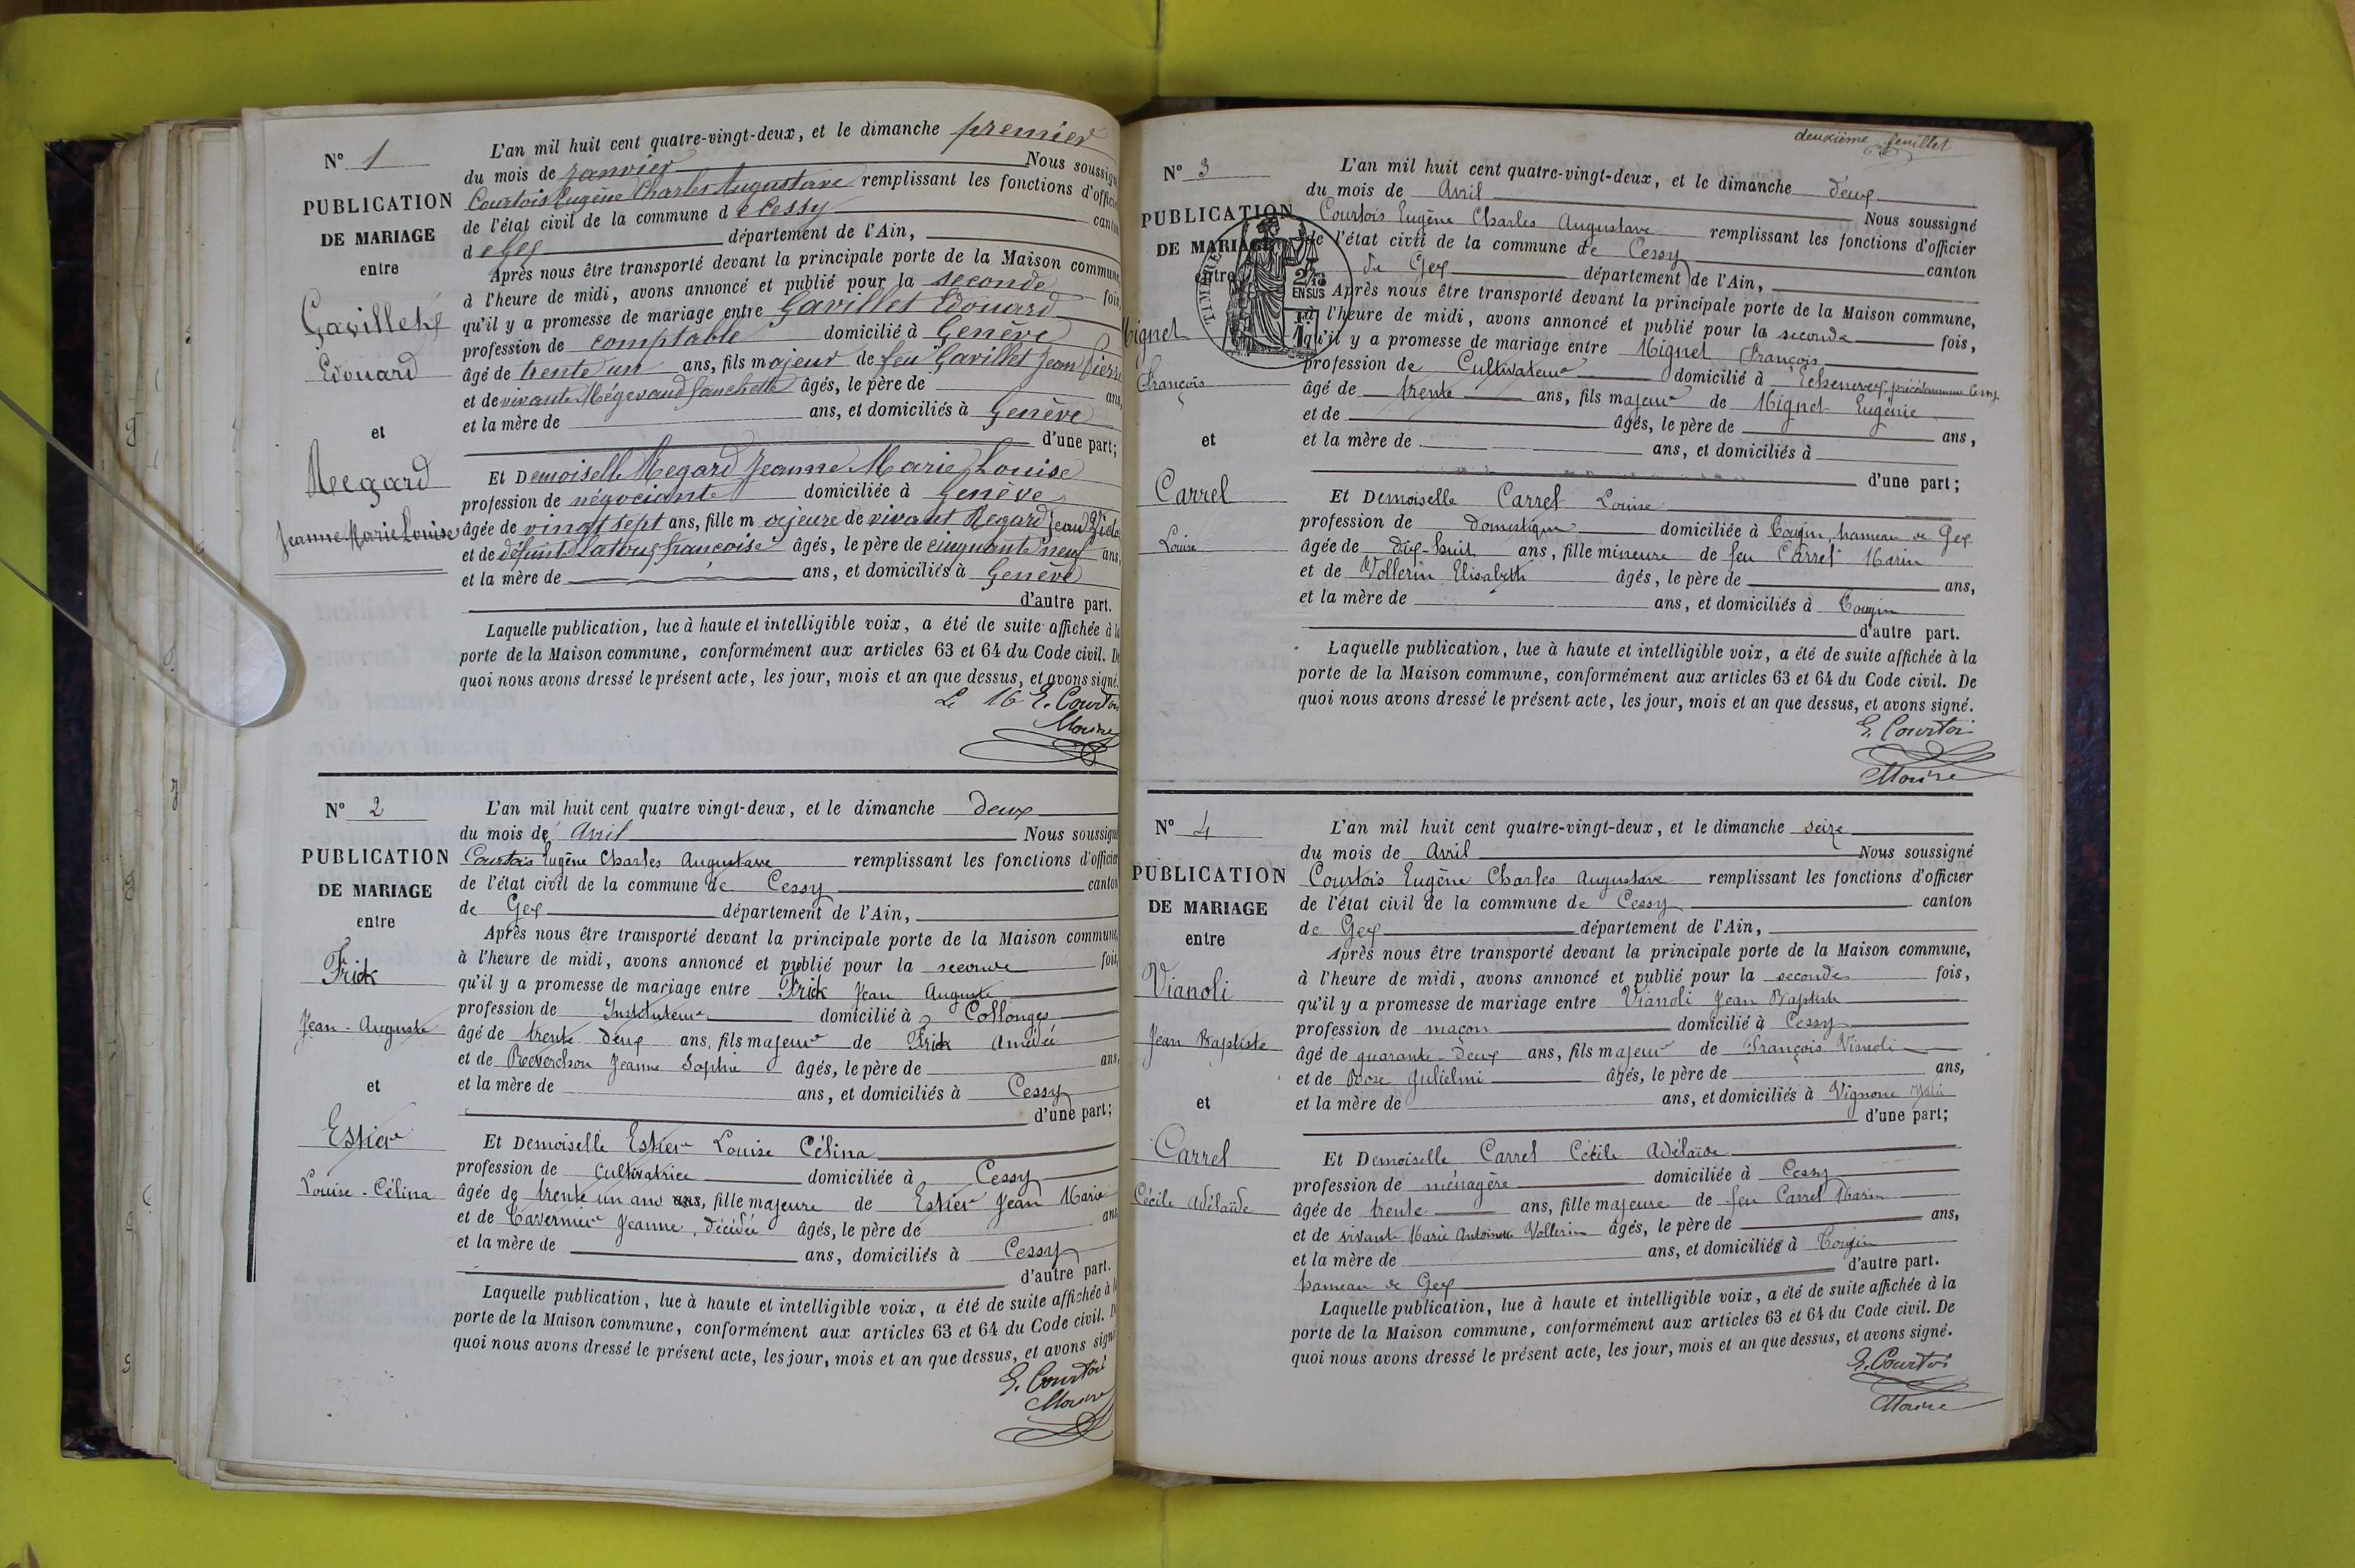 N° 1
PUBLICATION
DE MARIAGE
entre
Gavillet
Edouard
et
Regard
Jeanne Marie Louise
L'an mil huit cent quatre-vingt-deux, et le dimanche premier
du mois de Janvier Nous soussigné
Courtois Eugène Charles Augustave remplissant les fonctions d'officier
de l'état civil de la commune de Cessy canton
de Gex département de l'Ain,
Après nous être transporté devant la principale porte de la Maison commune,
à l'heure de midi, avons annoncé et publié pour la seconde fois,
qu'il y a promesse de mariage entre Gavillet Edouard
profession de comptable domicilié à Genève
âgé de trente un ans, fils majeur de feu Gavillet Jean Pierre
et de vivante Mégevand Fanchette âgés, le père de ans,
et la mère de ans, et domiciliés à Genève
d'une part;
Et Demoiselle Regard Jeanne Marie Louise
profession de négociante domiciliée à Genève
âgée de vingt sept ans, fille majeure de vivant Regard Jean
et de défunte Françoise âgés, le père de cinquante neuf ans,
et la mère de ans, et domiciliés à Genève
d'autre part.
Laquelle publication, lue à haute et intelligible voix, a été de suite affichée à la
porte de la Maison commune, conformément aux articles 63 et 64 du Code civil. De
quoi nous avons dressé le présent acte, les jour, mois et an que dessus, et avons signé.
Le 16 E. Courtois
Maire
N° 2
PUBLICATION
DE MARIAGE
entre
Frick
Jean-Auguste
et
Estier
Louise-Célina
L'an mil huit cent quatre vingt-deux, et le dimanche deux
du mois de Avril Nous soussigné
Courtois Eugène Charles Augustave remplissant les fonctions d'officier
de l'état civil de la commune de Cessy canton
de Gex département de l'Ain,
Après nous être transporté devant la principale porte de la Maison commune,
à l'heure de midi, avons annoncé et publié pour la seconde fois,
qu'il y a promesse de mariage entre Frick Jean Auguste
profession de Instituteur domicilié à Collonges
âgé de trente deux ans, fils majeur de Frick Amédée
et de Reverchon Jeanne Sophie âgés, le père de ans,
et la mère de ans, et domiciliés à Cessy
d'une part;
Et Demoiselle Estier Louise Célina
profession de Cultivatrice domiciliée à Cessy
âgée de trente un ans ans, fille majeure de Estier Jean Marie
et de Tavernier Jeanne, décédée âgés, le père de ans
et la mère de ans, domiciliés à Cessy
d'autre part.
Laquelle publication, lue à haute et intelligible voix, a été de suite affichée à la
porte de la Maison commune, conformément aux articles 63 et 64 du Code civil. De
quoi nous avons dressé le présent acte, les jour, mois et an que dessus, et avons signé
E. Courtois
Maire
deuxième feuillet
N° 3
PUBLICATION
DE MARIAGE
entre
Mignet
François
et
Carrel
Louise
L'an mil huit cent quatre-vingt-deux, et le dimanche deux
du mois de Avril Nous soussigné
Courtois Eugène Charles Augustave remplissant les fonctions d'officier
de l'état civil de la commune de Cessy canton
de Gex département de l'Ain,
Après nous être transporté devant la principale porte de la Maison commune,
à l'heure de midi, avons annoncé et publié pour la seconde fois,
qu'il y a promesse de mariage entre Mignet François
profession de Cultivateur domicilié à Echenevex précédemment Cessy
âgé de trente ans, fils majeur de Mignet Eugénie
et de âgés, le père de ans,
et la mère de ans, et domiciliés à
d'une part;
Et Demoiselle Carrel Louise
profession de Domestique domiciliée à Tougin, hameau de Gex
âgée de dix-huit ans, fille mineure de feu Carrel Marin
et de Vollerin Elisabeth âgés, le père de ans,
et la mère de ans, et domiciliés à Tougin
d'autre part.
Laquelle publication, lue à haute et intelligible voix, a été de suite affichée à la
porte de la Maison commune, conformément aux articles 63 et 64 du Code civil. De
quoi nous avons dressé le présent acte, les jour, mois et an que dessus, et avons signé.
E. Courtois
Maire
N° 4
PUBLICATION
DE MARIAGE
entre
Vianoli
Jean Baptiste
et
Carrel
Cécile Adélaïde
L'an mil huit cent quatre-vingt-deux, et le dimanche seize
du mois de Avril Nous soussigné
Courtois Eugène Charles Augustave remplissant les fonctions d'officier
de l'état civil de la commune de Cessy canton
de Gex département de l'Ain,
Après nous être transporté devant la principale porte de la Maison commune,
à l'heure de midi, avons annoncé et publié pour la seconde fois,
qu'il y a promesse de mariage entre Vianoli Jean Baptiste
profession de maçon domicilié à Cessy
âgé de quarante-deux ans, fils majeur de François Vianoli
et de Rose Gulielmi âgés, le père de ans,
et la mère de ans, et domiciliés à Vignone Italie
d'une part;
Et Demoiselle Carrel Cécile Adélaïde
profession de ménagère domiciliée à Cessy
âgée de trente ans, fille majeure de feu Carrel Marin
et de vivante Marie Antoinette Vollerin âgés, le père de ans,
et la mère de ans, et domiciliés à Tougin
hameau de Gex d'autre part.
Laquelle publication, lue à haute et intelligible voix, a été de suite affichée à la
porte de la Maison commune, conformément aux articles 63 et 64 du Code civil. De
quoi nous avons dressé le présent acte, les jour, mois et an que dessus, et avons signé.
E. Courtois
Maire